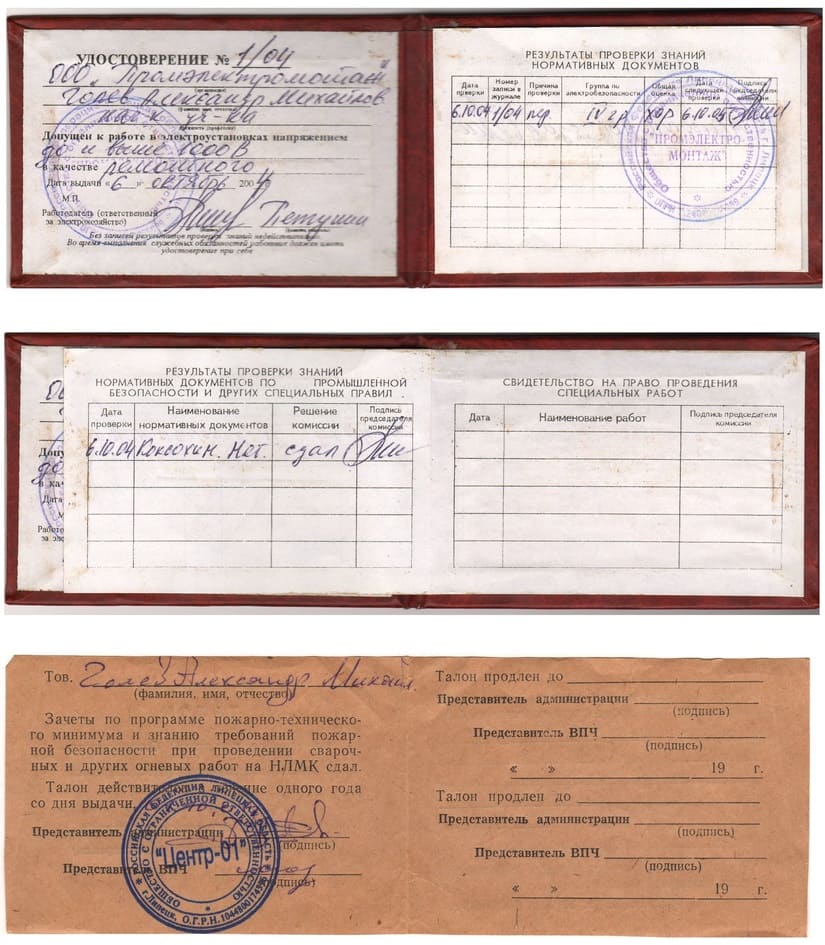 УДОСТОВЕРЕНИЕ № 1/04
ООО "Промэлектромонтаж"
Голев Александр Михайлов
нач-к уч-ка
Допущен к работе в электроустановках напряжением
до и выше 1000 В
в качестве ремонтного
Дата выдачи « 6 » октябрь 2004
М.П.
Работодатель (ответственный
за электрохозяйство)
Без записей результатов проверки знаний недействительно
Во время выполнения служебных обязанностей работник должен иметь
удостоверение при себе
РЕЗУЛЬТАТЫ ПРОВЕРКИ ЗНАНИЙ
НОРМАТИВНЫХ ДОКУМЕНТОВ
Дата проверки Номер записи в журнале Причина проверки Группа по электробезопасности Общая оценка Дата следующей проверки Подпись председателя комиссии
6.10.04 1/04 пер. IV гр. хор 6.10.05
"ПРОМЭЛЕКТРО-
МОНТАЖ"
РЕЗУЛЬТАТЫ ПРОВЕРКИ ЗНАНИЙ
НОРМАТИВНЫХ ДОКУМЕНТОВ ПО ПРОМЫШЛЕННОЙ
БЕЗОПАСНОСТИ И ДРУГИХ СПЕЦИАЛЬНЫХ ПРАВИЛ .
Дата проверки Наименование нормативных документов Решение комиссии Подпись председателя комиссии
6.10.04 сдал
СВИДЕТЕЛЬСТВО НА ПРАВО ПРОВЕДЕНИЯ
СПЕЦИАЛЬНЫХ РАБОТ
Дата Наименование работ Подпись председателя комиссии
Тов. Голев Александр Михайл.
(фамилия, имя, отчество)
Зачеты по программе пожарно-техническо-
го минимума и знанию требований пожар-
ной безопасности при проведении свароч-
ных и других огневых работ на НЛМК сдал.
Талон действителен в течение одного года
со дня выдачи.
Представитель администрации
Представитель ВПЧ
(подпись)
ОБЩЕСТВО С ОГРАНИЧЕННОЙ ОТВЕТСТВЕННОСТЬЮ
РОССИЙСКАЯ ФЕДЕРАЦИЯ ЛИПЕЦКАЯ ОБЛАСТЬ
"Центр-01"
г. Липецк, О.Г.Р.Н.
Талон продлен до
Представитель администрации
(подпись)
Представитель ВПЧ
(подпись)
« » 19 г.
Талон продлен до
Представитель администрации
(подпись)
Представитель ВПЧ
(подпись)
« » 19 г.